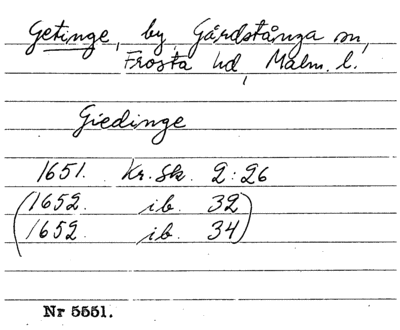 Getinge, by, Gårdstånga sn,
Frosta hd, Malm. l.
Giedinge
1651. Kr. Sk. 2:26
(1652. ib. 32)
(1652. ib. 34)
Nr 5551.